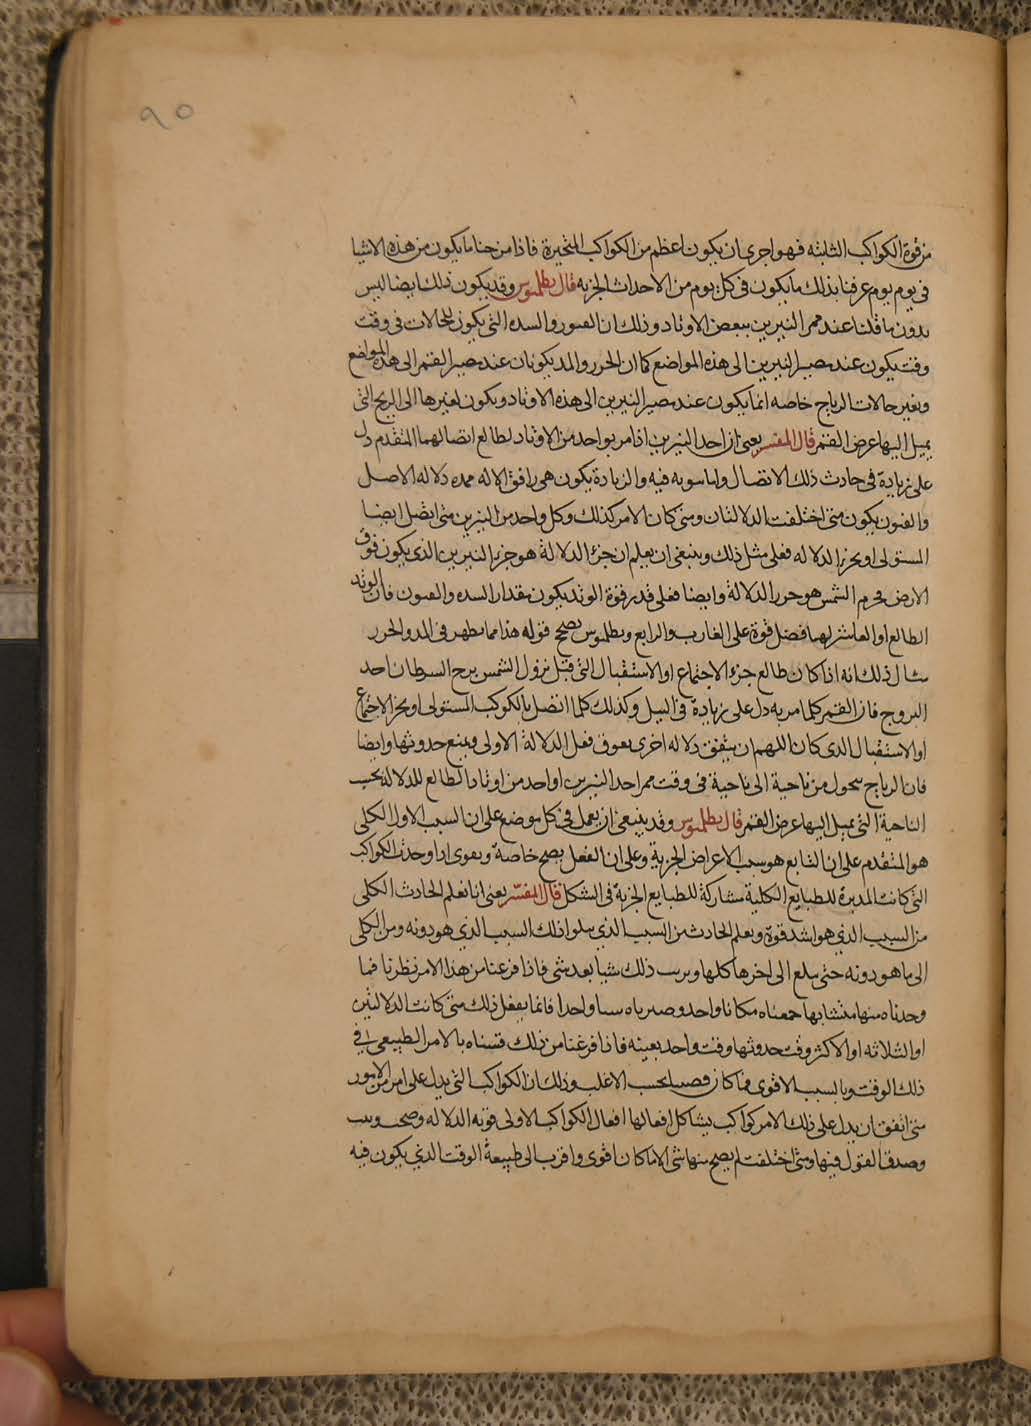 ٩٥
من قوة الكواكب الثابتة فهو احرى ان يكون اعظم من الكواكب المتحيرة فاذا مزجنا ما يكون من هذه الاشيا
فى يوم يوم عرفنا بذلك ما يكون فى كل يوم من الاحداث الجزيه قال بطلميوس وقد يكون ذلك ايضا ليس
بدون ما قلنا عند ممر النيرين ببعض الاوتاد وذلك ان الفتور والشده التى يكون للحالات فى وقت
وقت يكون عند مصير النيرين الى هذه المواضع كما ان الجزر والمد يكونان عند مصير القمر الى هذه المواضع
وتغير حالات الرياح خاصه انما يكون عند مصير النيرين الى هذه الاوتاد ويكون تغيرها الى الريح التى
يميل اليها عرض القمر قال المفسر يعنى ان احد النيرين اذا مر بواحد من الاوتاد لطالع اتصالهما المتقدم دل
على زيادة فى حادث ذلك الاتصال والزيادة يكون دلاله الاصل
والفتور يكون متى اختلفت الدلالتان ومتى كان الامر كذلك وكل واحد من النيرين متى اتصل ايضا
المستولى او بجزء الدلاله فعلى مثل ذلك وينبغى ان يعلم ان جزء الدلالة هو جزء النيرين الذى يكون فوق
الارض الشمس هو جزء الدلالة وايضا فعلى قدر قوة الوتد يكون مقدار الشده والفتور فان الوتد
الطالع او العاشر لهما فضل قوة على الغارب والرابع وبطلميوس يصحح قوله هذا مما يظهر فى المد والجزر
مثال ذلك انه اذا كان طالع جزء الاجتماع او الاستقبال التى قبل نزول الشمس برج السرطان احد
البروج فان القمر كلما مر به دل على زيادة فى النيل وكذلك كلما اتصل بالكوكب المستولى او بجزء الاجتماع
او الاستقبال الذى كان اللهم ان يتفق دلاله اخرى يعوق فعل الدلالة الاولى ويمنع حدوثها وايضا
فان الرياح يتحول من ناحية الى ناحية فى وقت ممر احد النيرين او احد من اوتاد الطالع للدلاله بحسب
الناحية التى يميل اليها عرض القمر قال بطلميوس وقد ينبغى ان يعمل فى كل موضع على ان السبب الاول الكلى
هو المتقدم على ان التابع هو سبب الاعراض الجزية وعلى ان الفعل يصح خاصة ويقوى اذا وجدت الكواكب
التى كانت المدبرة للطبايع الكلية مشاركة للطبايع الجزية فى الشكل قال المفسر يعنى انا نعلم الحادث الكلى
من السبب الذى هو اشد قوة ونعلم الحادث من السبب الذى يتلوا ذلك السبب الذى هو دونه ومن الكلى
الى ما هو دونه حتى يبلغ الى اخرها كلها ويرتب ذلك شيا بعد شى فاذا فرغنا من هذا الامر نظرنا فما
وجدناه منها متشابها جمعناه مكانا واحد وصيرناه سببا واحدا فانما يفعل ذلك متى كانت الدلالتين
او الثلاثه او الاكثر وقت حدوثها وقت واحد بعينه فاذا فرغنا من ذلك قسناه بالامر الطبيعى فى
ذلك الوقت وبالسبب الاقوى فما كان بحسب الاغلب وذلك ان الكواكب التى يدل على امر من الامور
متى اتفق ان يدل على ذلك الامر كواكب يشاكل افعالها افعال الكواكب الاولى قويه الدلاله وصحت
وصدق القول فيها ومتى اختلفت لم يصح منها شى الا ما كان اقوى واقرب الى طبيعة الوقت الذى يكون فيه